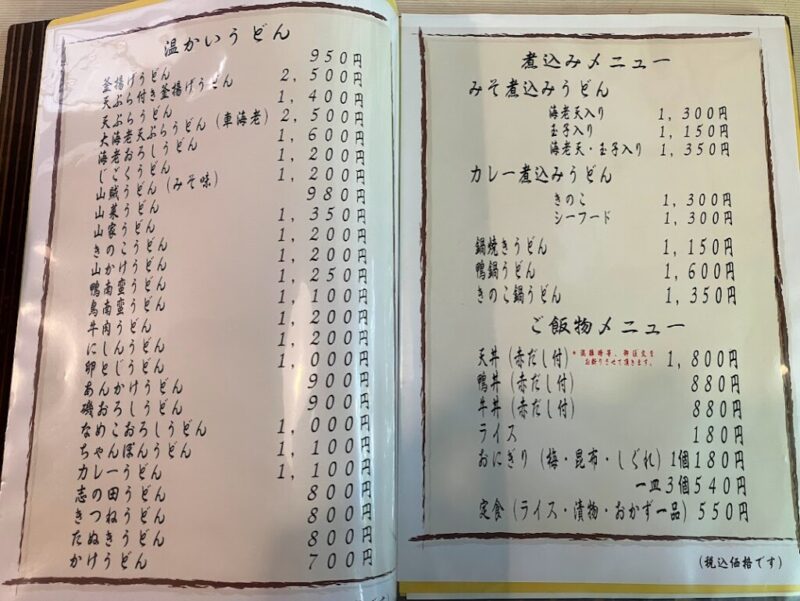 温かいうどん
釜揚げうどん 950円
天ぷら付き釜揚げうどん 2,500円
天ぷらうどん 1,400円
大海老天ぷらうどん(車海老) 2,500円
海老おろしうどん 1,600円
じごくうどん 1,200円
山賊うどん(みそ味) 1,200円
山菜うどん 980円
山家うどん 1,350円
きのこうどん 1,200円
山かけうどん 1,200円
鴨南蛮うどん 1,250円
鳥南蛮うどん 1,100円
牛肉うどん 1,200円
にしんうどん 1,200円
卵とじうどん 1,000円
あんかけうどん 900円
磯おろしうどん 900円
なめこおろしうどん 1,000円
ちゃんぽんうどん 1,100円
カレーうどん 1,100円
志の田うどん 800円
きつねうどん 800円
たぬきうどん 800円
かけうどん 700円
煮込みメニュー
みそ煮込みうどん
海老天入り 1,300円
玉子入り 1,150円
海老天・玉子入り 1,350円
カレー煮込みうどん
きのこ 1,300円
シーフード 1,300円
鍋焼きうどん 1,150円
鴨鍋うどん 1,600円
きのこ鍋うどん 1,350円
ご飯物メニュー
天丼(赤だし付) 1,800円
*混雑時等、御注文を
お断りさせて頂きます。
鴨丼(赤だし付) 880円
牛丼(赤だし付) 880円
ライス 180円
おにぎり(梅・昆布・しぐれ)1個180円
一皿3個540円
定食(ライス・漬物・おかず一品) 550円
(税込価格です)